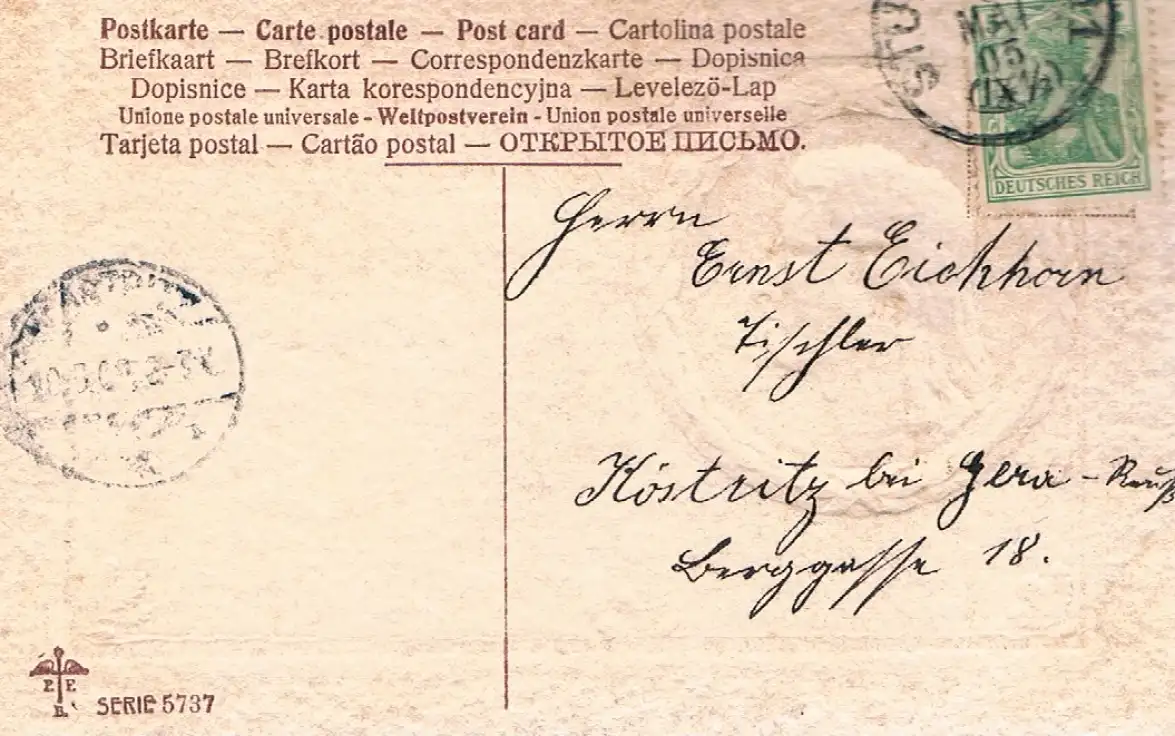 Postkarte — Carte postale — Post card — Cartolina postale
Briefkaart — Brefkort — Correspondenzkarte — Dopisnica
Dopisnice — Karta korespondencyjna — Levelező-Lap
Unione postale universale - Weltpostverein - Union postale universelle
Tarjeta postal — Cartão postal — ОТКРЫТОЕ ПИСЬМО.
MAI
05
DEUTSCHES REICH
Herrn
Ernst Eichhorn
Tischler
Köstritz bei Gera - Reuß
Berggasse 18.
P. F.
B.
SERIE 5737